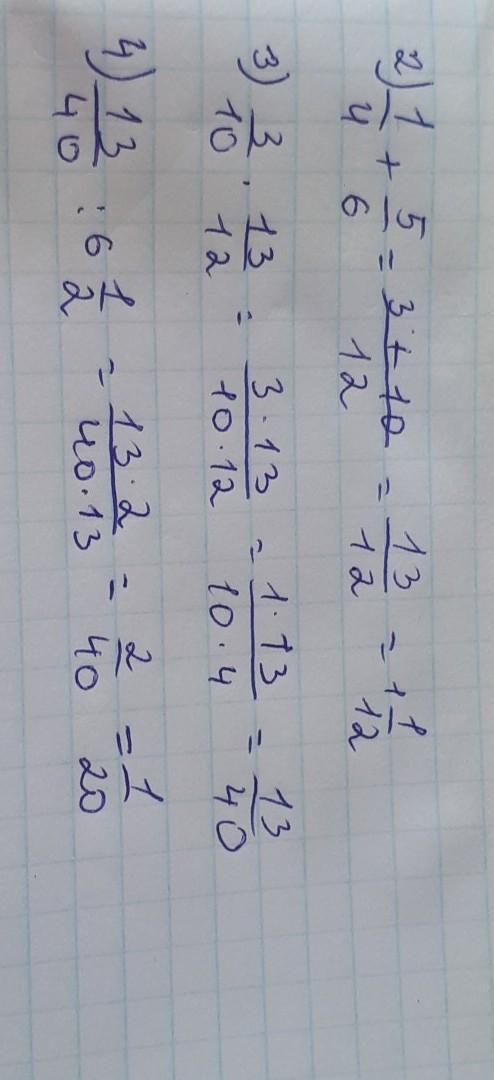 2) 1/4 + 5/6 = 3+10/12 = 13/12 = 1 1/12
3) 3/10 · 13/12 = 3·13/10·12 = 1·13/10·4 = 13/40
4) 13/40 : 6 1/2 = 13·2/40·13 = 2/40 = 1/20